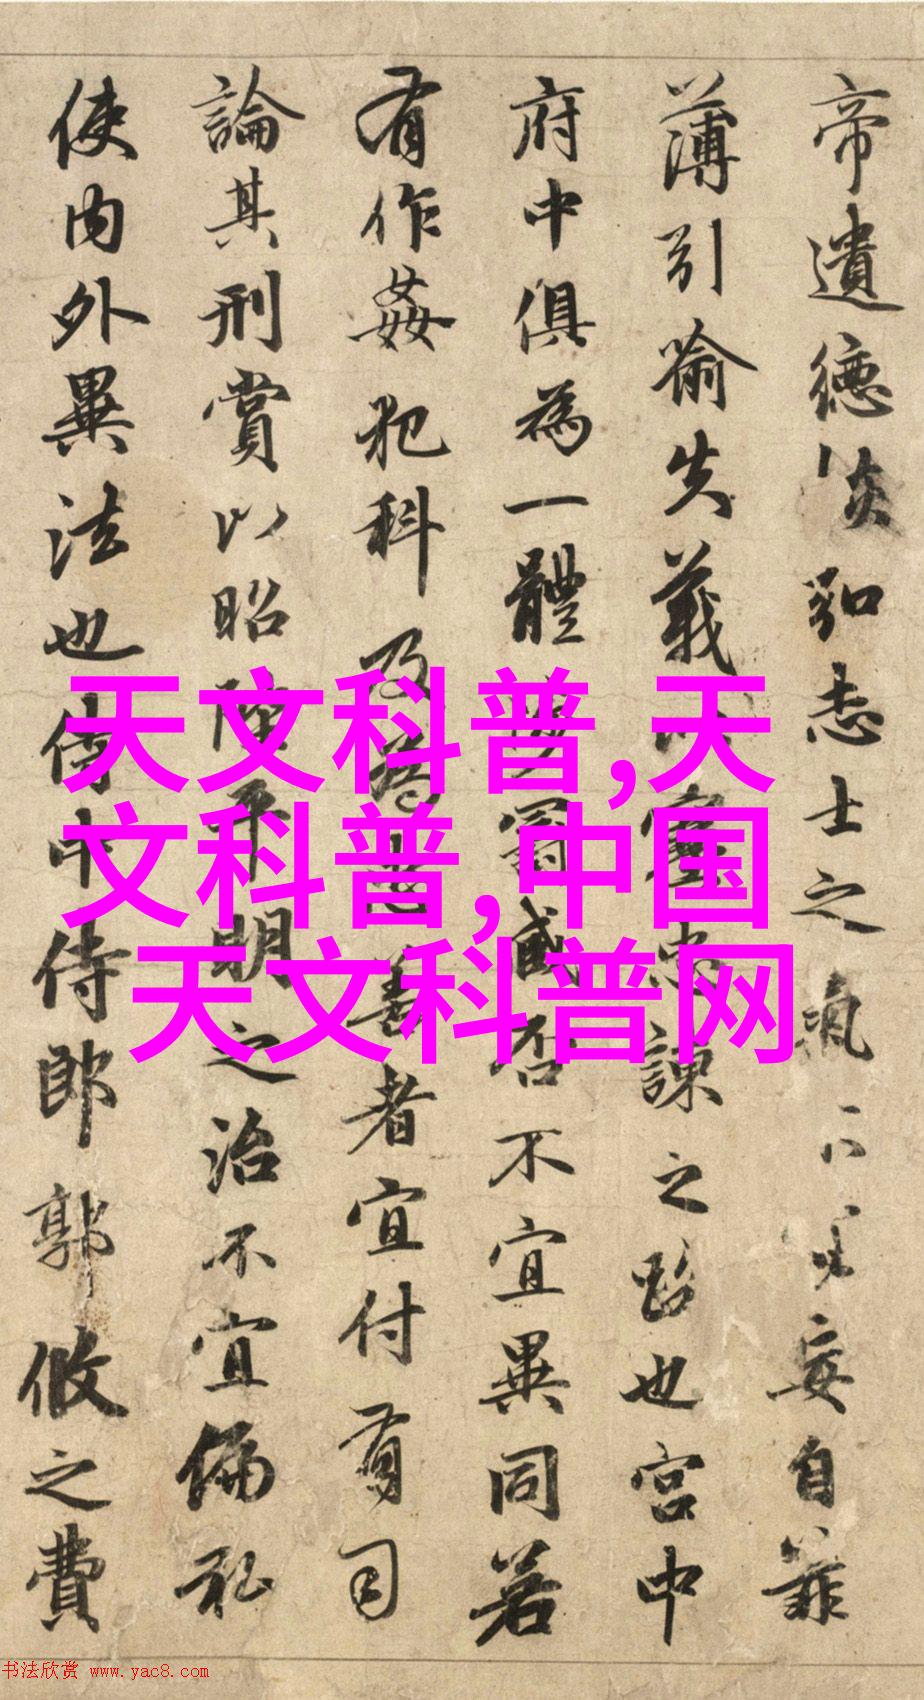 帝遺德恢弘志士之氣不宜妄自菲
薄引喻失義以塞忠諫之路也宮中
府中俱為一體陟罰臧否不宜異同若
有作姦犯科及為忠善者宜付有司
論其刑賞以昭陛平明之治不宜偏私
使內外異法也侍中侍郎郭攸之費
天文科普,天
文科普,中国
天文科普网
书法欣赏 www.yac8.com